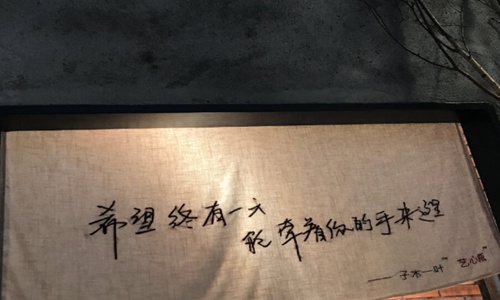 希望终有一天
能牵着你的手来这里
——子木一叶"艺心展"